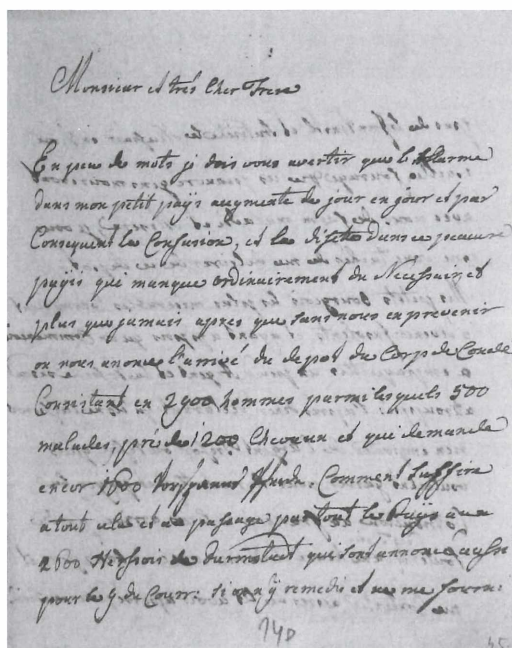 Monsieur et très Cher Frere
En peu de mots je dois vous avertir que l'allarme
dans mon petit païs augmente de jour en jour et par
Consequent la Confusion, et la disette dans ce pauvre
païis que manque ordinairement du Necessaire et
plus que jamais apres que sans nous en prevenir
on nous anonce l'arrivé du depot du Corp de Condé
Consistant en 2900 hommes parmi lesquels 500
malades, près de 1200 Chevaux et qui demande
encor 1600 Comment suffire
a tout cela et au passage par tout le Païis a
2600 Hessois de Darmstadt qui sont annoncé aussi
pour le 9 du Cour: si on n'y remedie et ne me fourni:
740
45